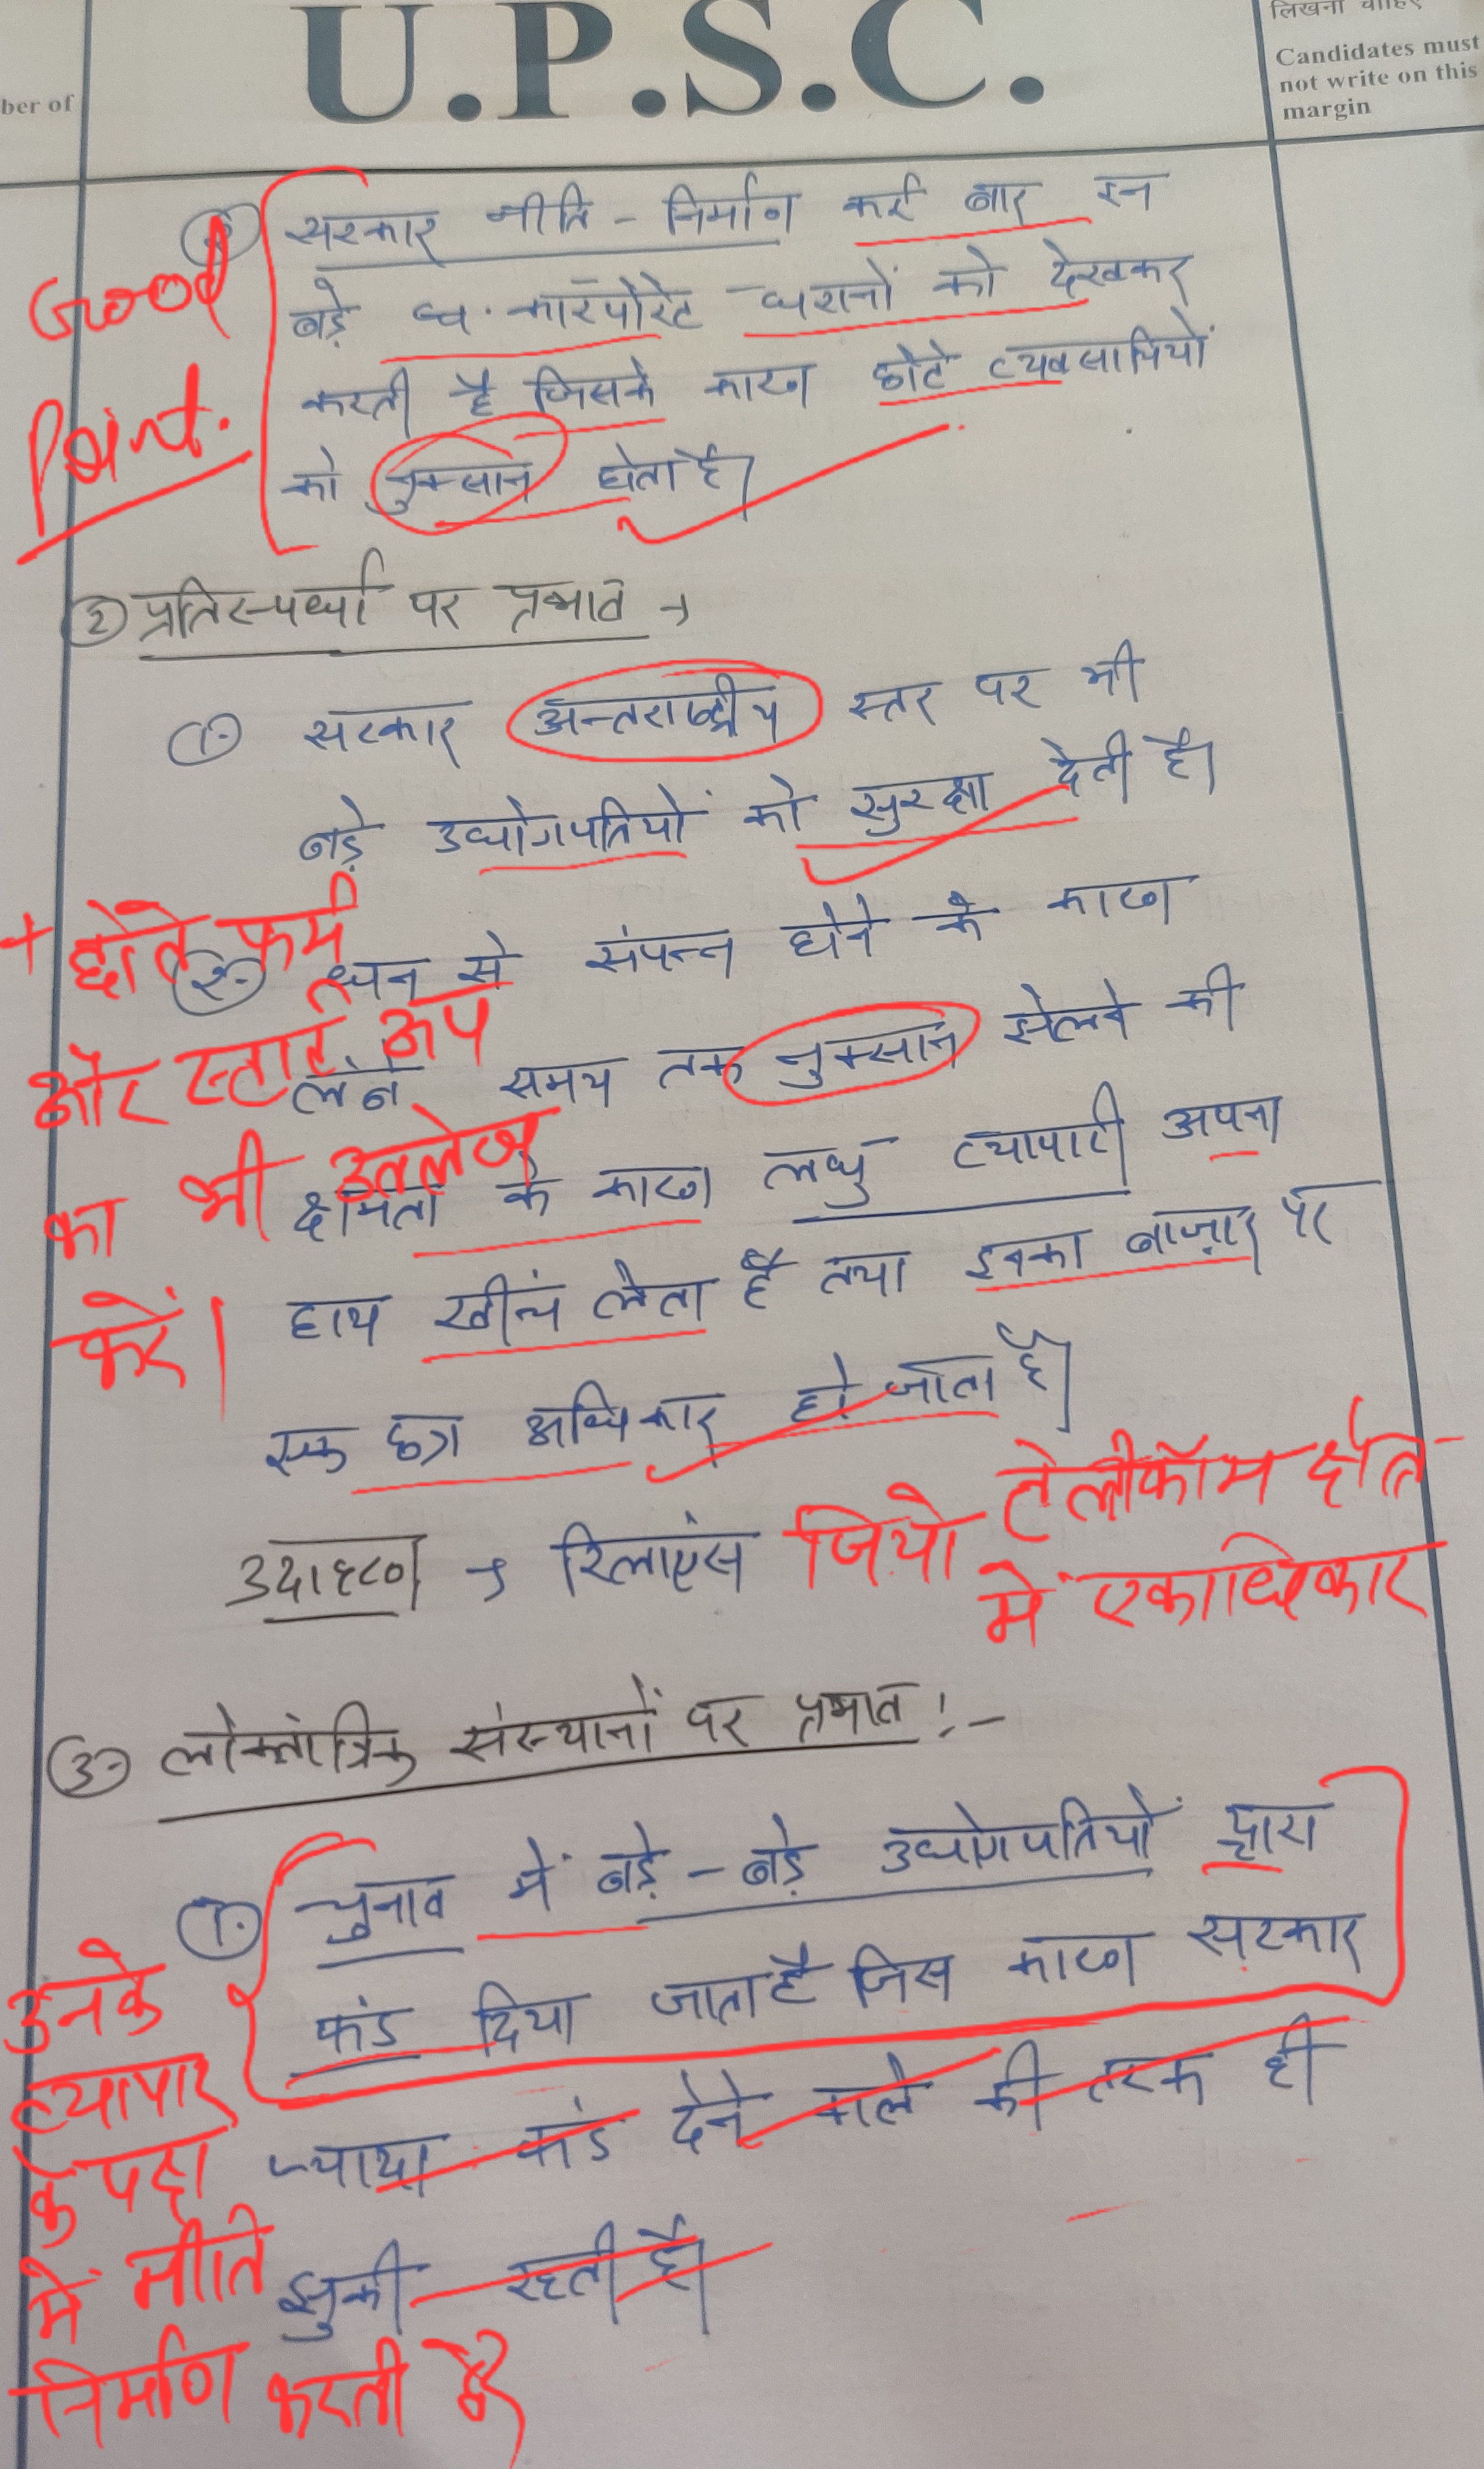 ber of
U.P.S.C.
लिखना चाहिए
Candidates must
not write on this
margin
सरकार नीति - निर्माण कई बार इन
बड़े कॉरपोरेट घरानों को देखकर
करती है जिसके कारण छोटे व्यवसायियों
को नुक्सान होता है।
Good
Point.
② प्रतिस्पर्धा पर प्रभाव →
① सरकार अन्तराष्ट्रीय स्तर पर भी
बड़े उद्योगपतियों को सुरक्षा देती है।
② धन से संपन्न होने के कारण
लंबे समय तक नुक्सान झेलने की
क्षमता के कारण लघु व्यापारी अपना
हाथ खींच लेता है तथा इनका बाज़ार पर
एक छत्र अधिकार हो जाता है।
+ छोटे फर्म
और स्टार्ट अप
का भी उल्लेख
करें।
उदाहरण → रिलाएंस जियो टेलीकॉम क्षेत्र
में एकाधिकार
③ लोकतांत्रिक संस्थानों पर प्रभाव :-
① चुनाव में बड़े - बड़े उद्योगपतियों द्वारा
फंड दिया जाता है जिस कारण सरकार
ज्यादा फंड देने वाले की तरफ ही
झुकी रहती है।
उनके
व्यापार
के पक्ष
में नीति
निर्माण करती है